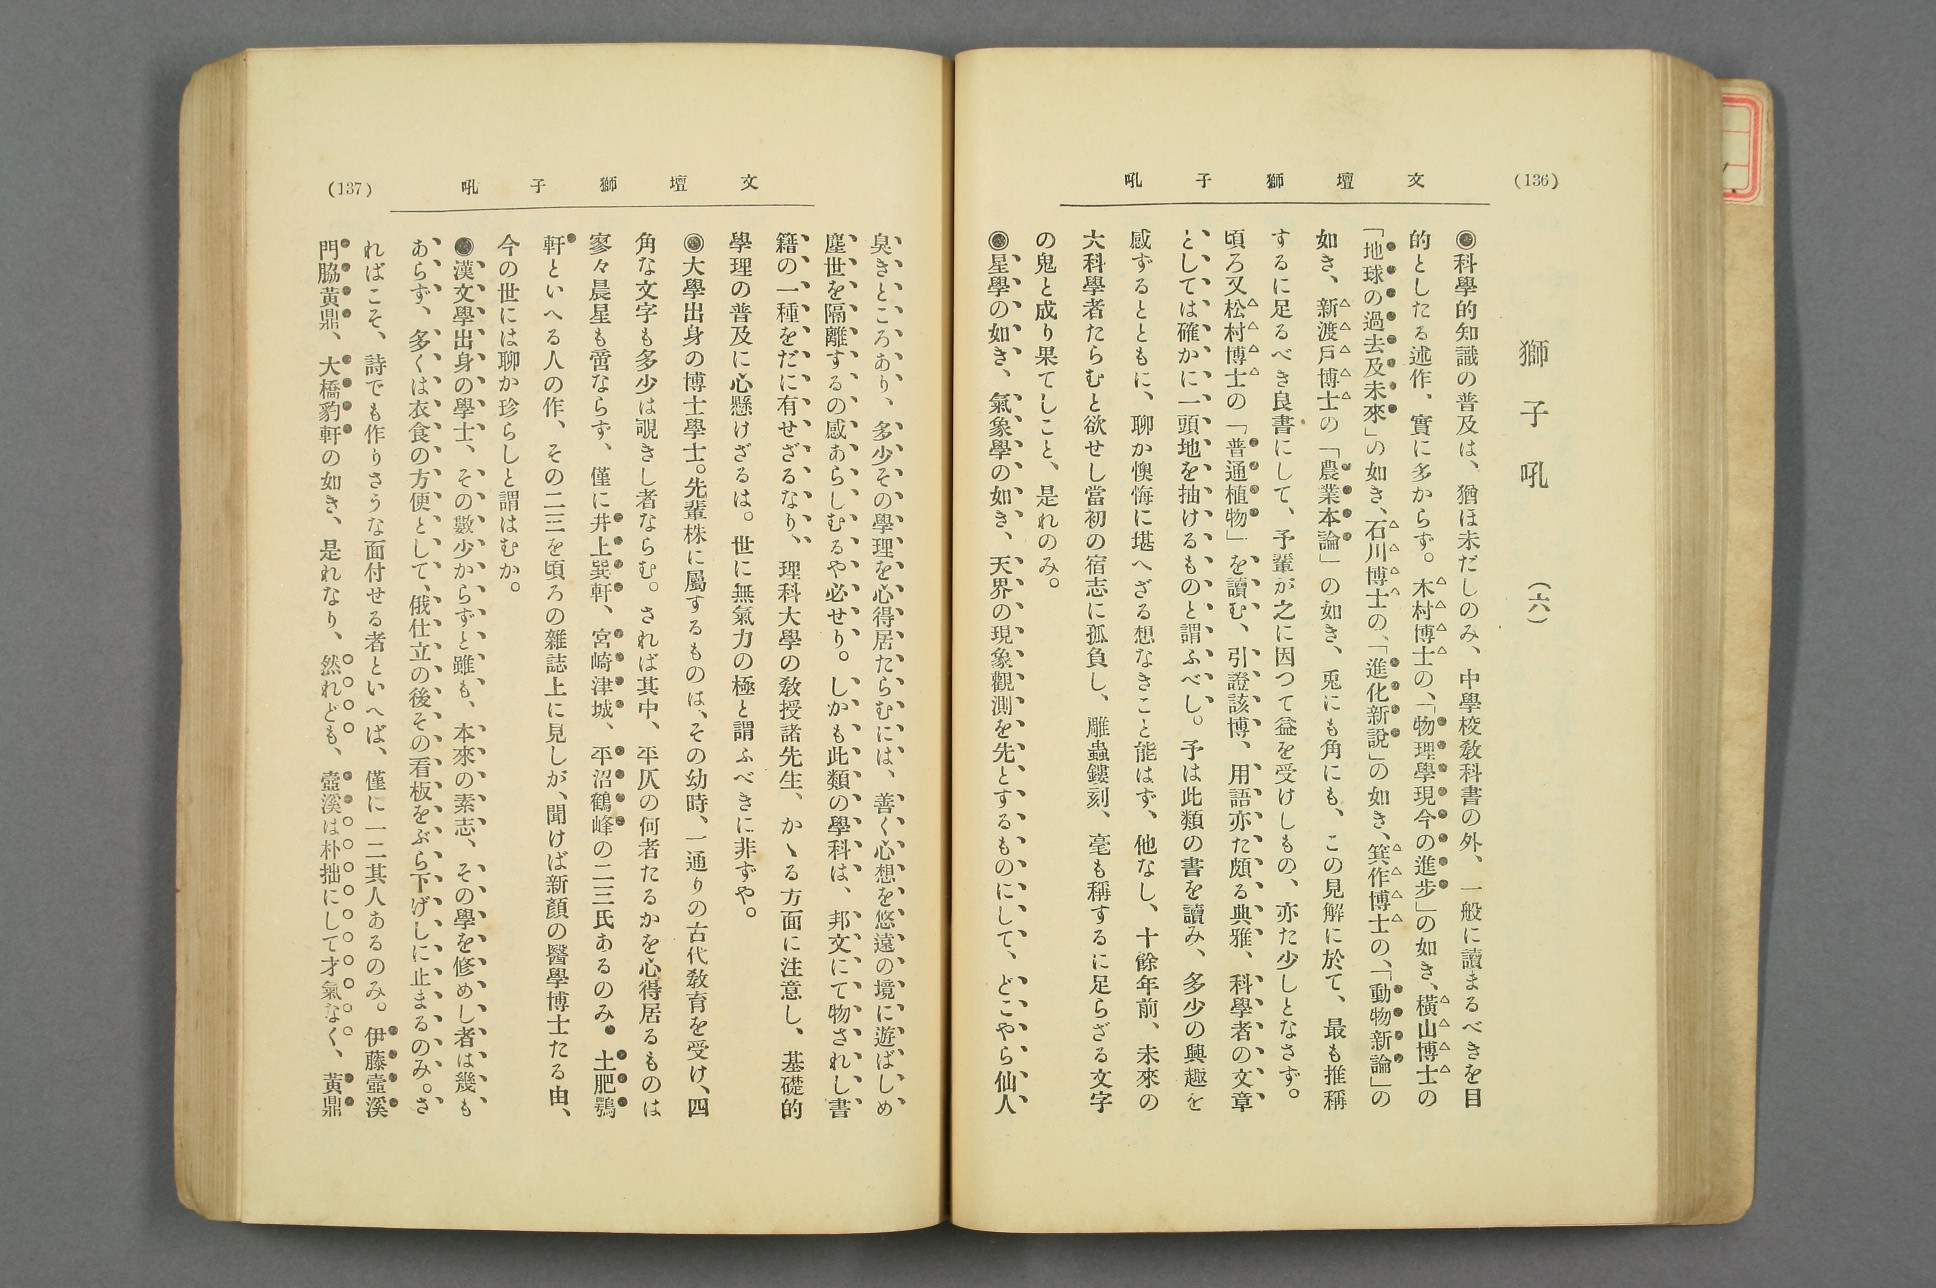 (136)
文壇獅子吼
獅子吼 (六)
◉科學的知識の普及は、猶ほ未だしのみ、中學校敎科書の外、一般に讀まるべきを目
的としたる述作、實に多からず。木村博士の、「物理學現今の進步」の如き、橫山博士の
「地球の過去及未來」の如き、石川博士の、「進化新說」の如き、箕作博士の、「動物新論」の
如き、新渡戶博士の「農業本論」の如き、兎にも角にも、この見解に於て、最も推稱
するに足るべき良書にして、予輩が之に因つて益を受けしもの、亦た少しとなさず。
頃ろ又松村博士の「普通植物」を讀む、引證該博、用語亦た頗る典雅、科學者の文章
としては確かに一頭地を抽けるものと謂ふべし。予は此類の書を讀み、多少の興趣を
感ずるとともに、聊か懊悔に堪へざる想なきこと能はず、他なし、十餘年前、未來の
大科學者たらむと欲せし當初の宿志に孤負し、雕蟲鏤刻、毫も稱するに足らざる文字
の鬼と成り果てしこと、是れのみ。
◉星學の如き、氣象學の如き、天界の現象觀測を先とするものにして、どこやら仙人
(137)
文壇獅子吼
臭きところあり、多少その學理を心得居たらむには、善く心想を悠遠の境に遊ばしめ
塵世を隔離するの感あらしむるや必せり。しかも此類の學科は、邦文にて物されし書
籍の一種をだに有せざるなり、理科大學の敎授諸先生、かゝる方面に注意し、基礎的
學理の普及に心懸けざるは。世に無氣力の極と謂ふべきに非ずや。
◉大學出身の博士學士。先輩株に屬するものは、その幼時、一通りの古代敎育を受け、四
角な文字も多少は覗きし者ならむ。されば其中、平仄の何者たるかを心得居るものは
寥々晨星も啻ならず、僅に井上巽軒、宮崎津城、平沼鶴峰の二三氏あるのみ。土肥鶚
軒といへる人の作、その二三を頃ろの雜誌上に見しが、聞けば新顏の醫學博士たる由、
今の世には聊か珍らしと謂はむか。
◉漢文學出身の學士、その數少からずと雖も、本來の素志、その學を修めし者は幾も
あらず、多くは衣食の方便として、俄仕立の後その看板をぶら下げしに止まるのみ。さ
ればこそ、詩でも作りさうな面付せる者といへば、僅に一二其人あるのみ。伊藤壺溪
門脇黃鼎、大橋豹軒の如き、是れなり、然れども、壺溪は朴拙にして才氣なく、黃鼎